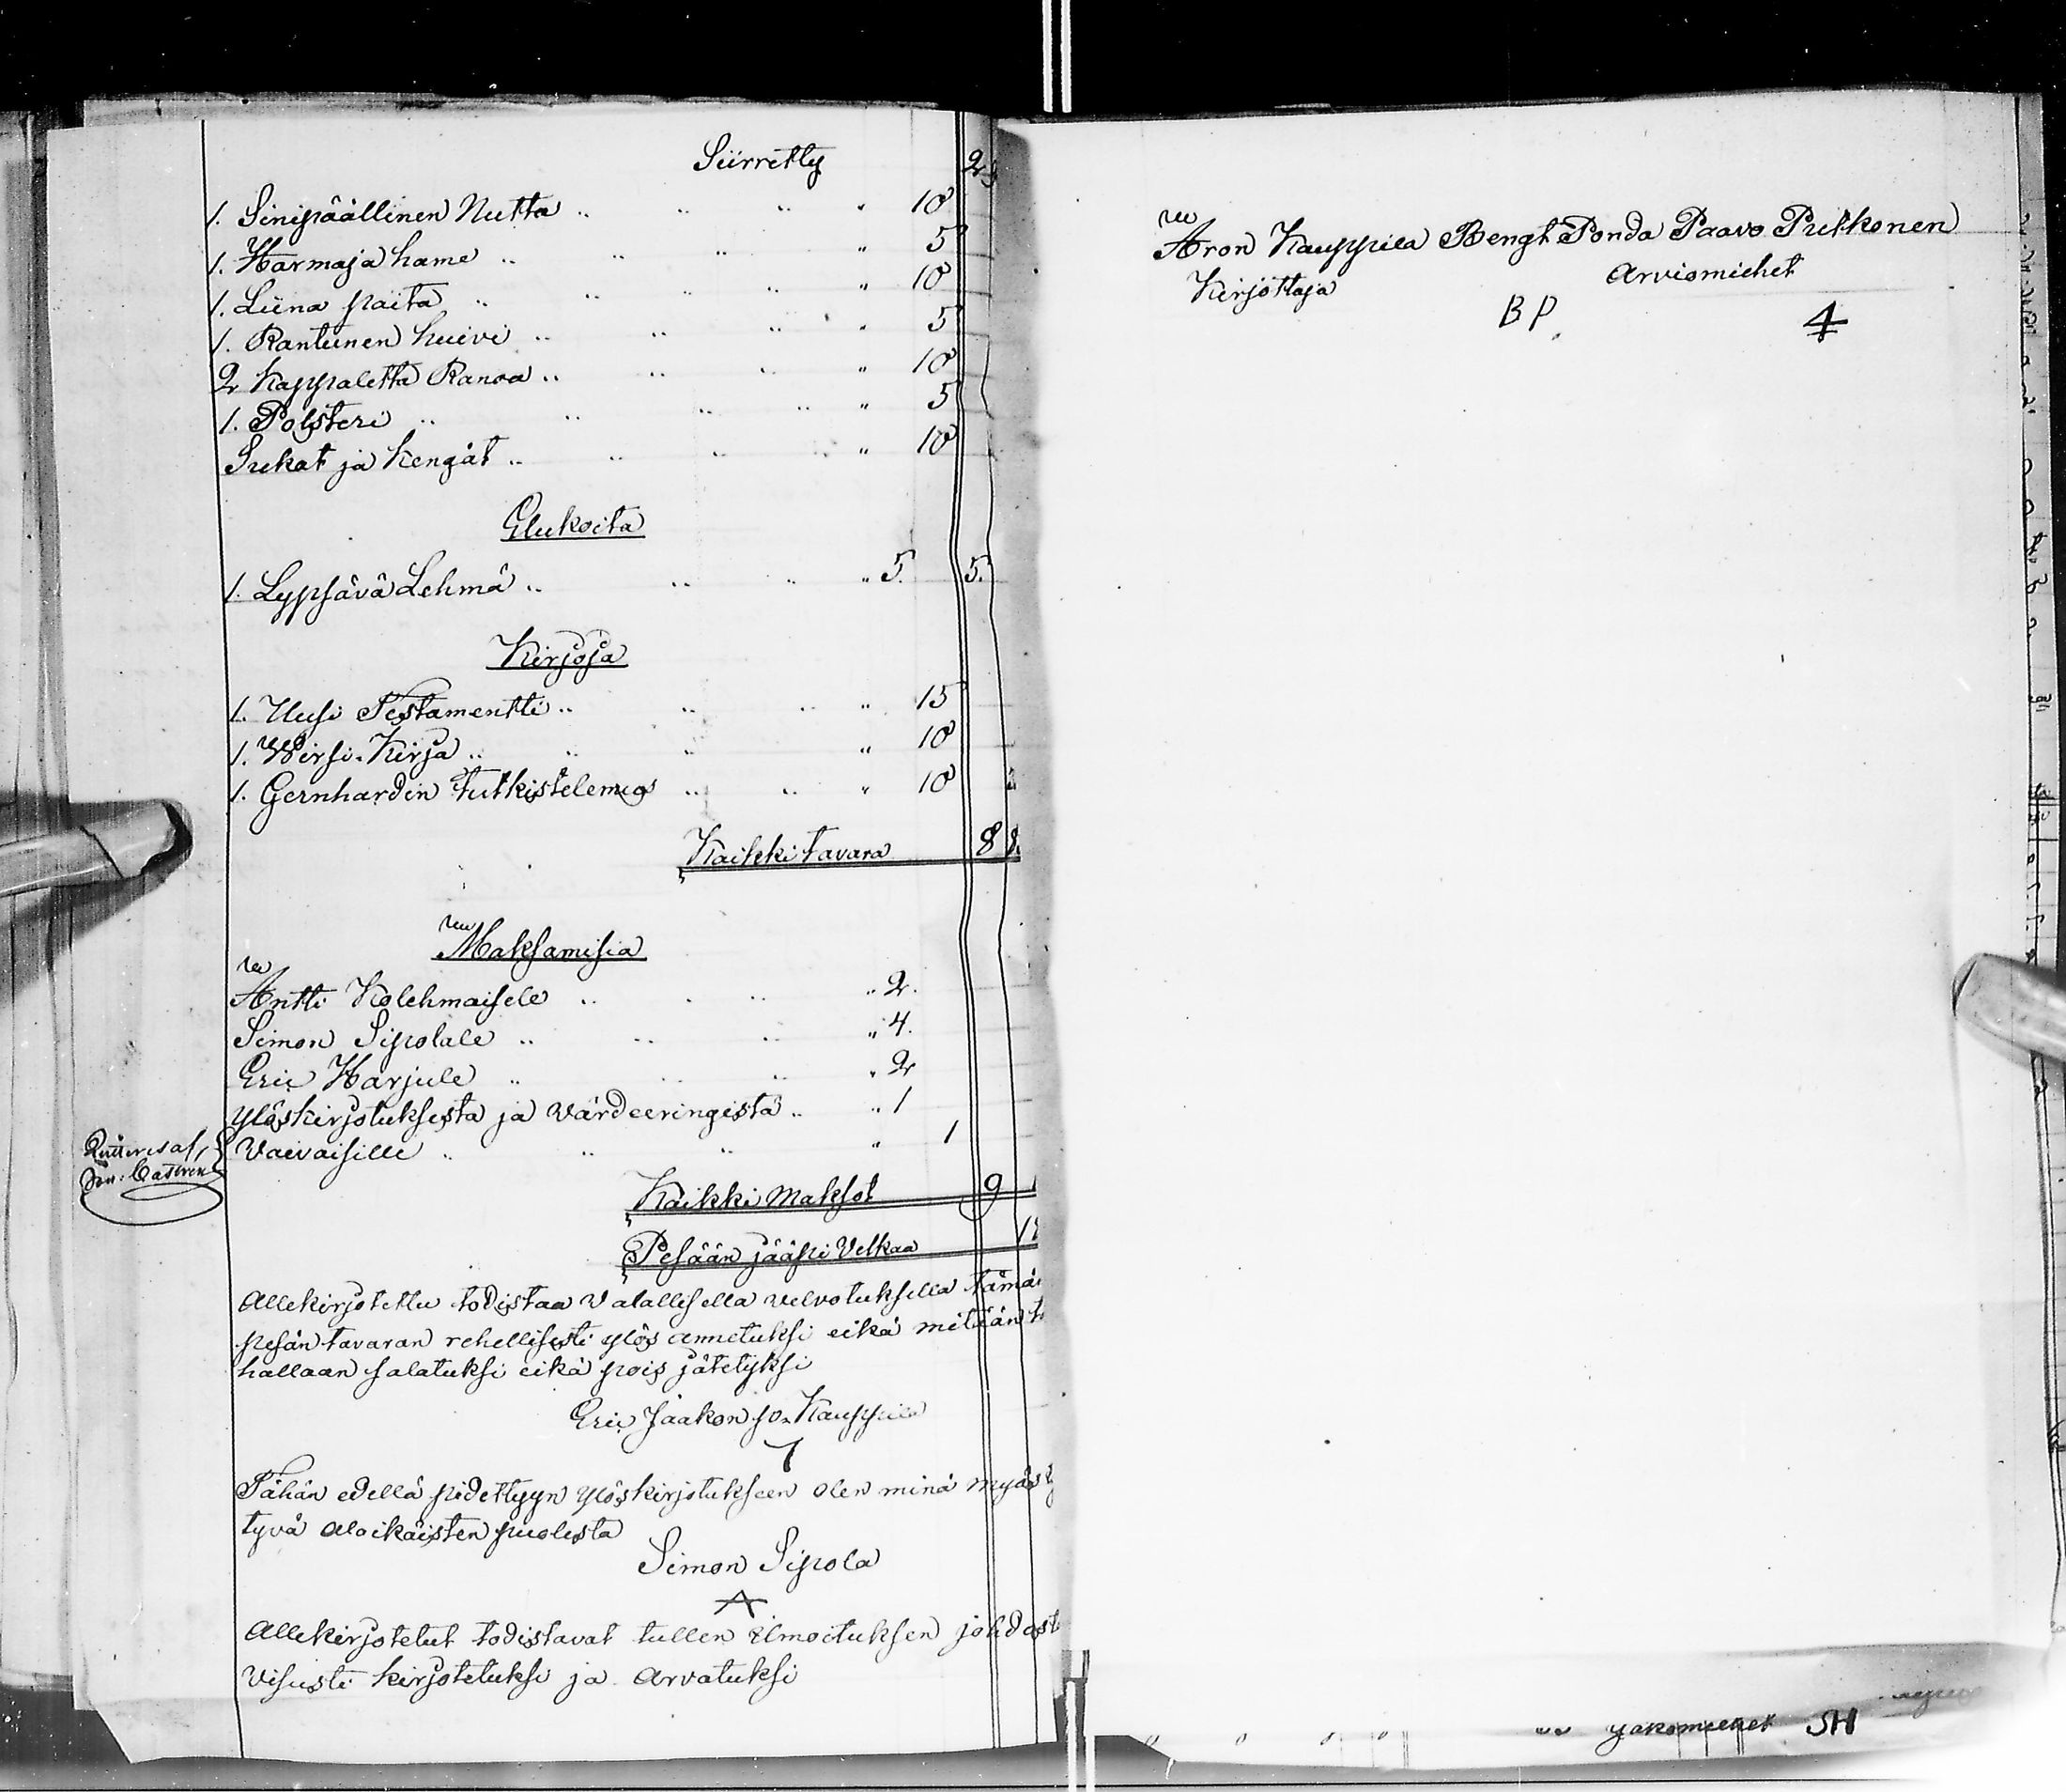 Siirretty 2
1. Sinipäällinen Nuttu " 10
1. Harmaja hame " 5
1. Liina paita " 10
1. Rantunen huivi " 5
2 Kappaletta Ranoa " 10
1. Polsteri " 5
Sukat ja kengät " 10
Elukoita
1. Lypsävä Lehmä " 5. 5.
Kirjoja
1. Uusi Testamentti " 15
1. Wirsi-Kirja " 10
1. Gernhardin tutkistelemus " 10
Kaikki tavara 8
Maksamisia
Antti Kolehmaisele " 2.
Simon Sipolale " 4.
Eric Harjule " 2
Ylöskirjotuksesta ja värdeeringistä " 1
Vaivaisille " 1
Qvitteras af,
Castren
Kaikki Maksot 9
Pesään jääpi Velkaa
Allekirjotettu todistaa Valallisella velvotuksella tämä
pesän tavaran rehellisesti ylös annetuksi eikä mitään
hallaan salatuksi eikä pois jätetyksi
Eric Jaakon po. Kauppila
Tähän edellä pidettyyn Ylöskirjotukseen olen minä myös
tyvä alaikäisten puolesta
Simon Sipola
Allekirjotetut todistavat tullen ilmoituksen johdosta
visusti kirjotetuksi ja arvatuksi
Aron Kauppila Bengt Ponda Paavo Putkonen
Kirjottaja Arviomiehet
BP
yakomiehet SH